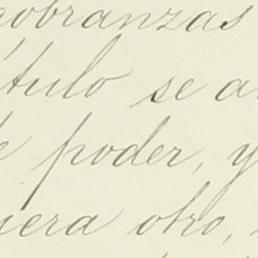 cobranzas
título se a
e poder, y
iera otro,